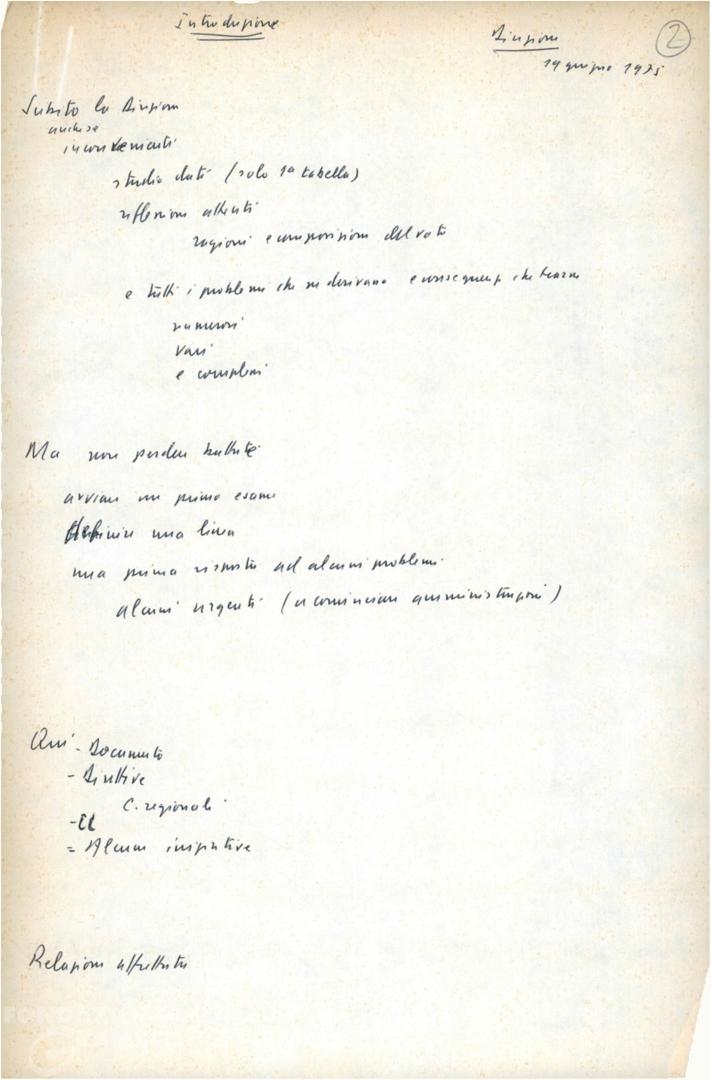 Introduzione
Direzione
2
19 giugno 1975
Subito la Direzione
anche se
inconvenienti
studio dati (solo 1a tabella)
riflessioni attenti
ragioni e composizione del voto
e tutti i problemi che ne derivano e conseguenze che trarne
numerosi
vari
e complessi
Ma non perdere battute
avviare un primo esame
definire una linea
una prima risposta ad alcuni problemi
alcuni urgenti (a cominciare amministrazioni)
Qui - Documento
- Direttive
C. regionali
- CC
= Alcune iniziative
Relazione affrettata